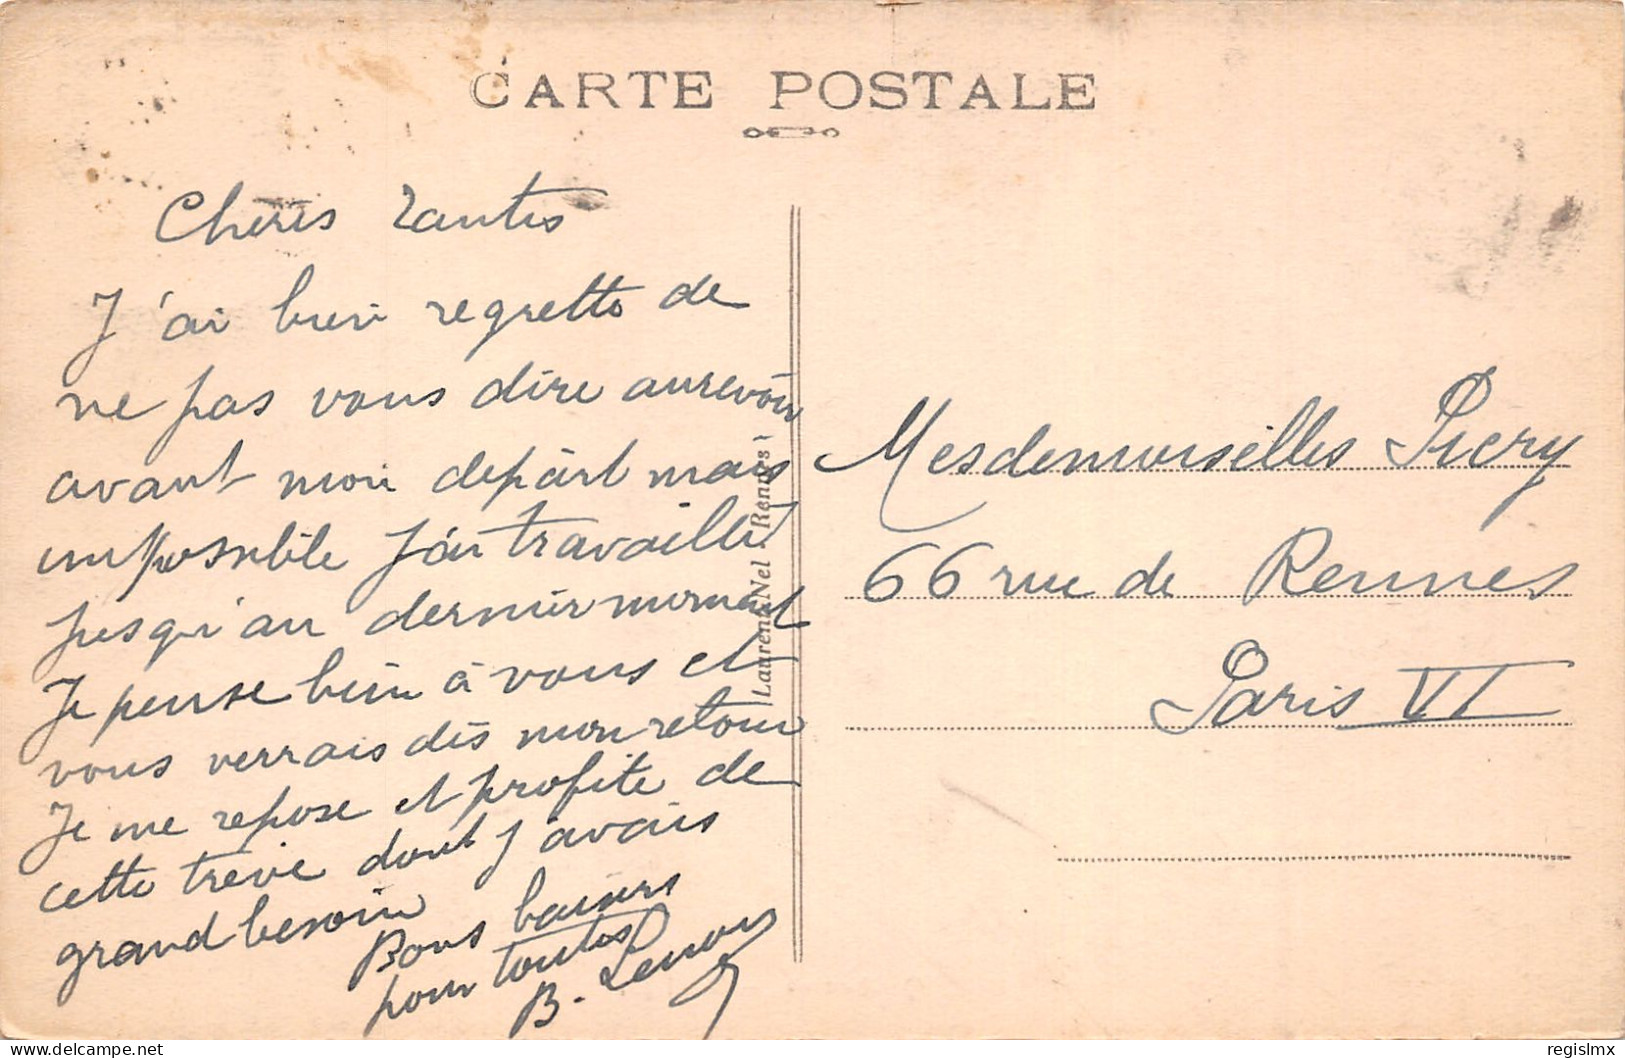 CARTE POSTALE
Chères Tantes
J'ai bien regretté de
ne pas vous dire aurevoir
avant mon départ mais
impossible j'ai travaillé
jusqu'au dernier moment
Je pense bien à vous et
vous verrais dès mon retour
Je me repose et profite de
cette trève dont j'avais
grand besoin
Bons baisers
pour toutes
B.
Laurent-Nel Rennes
Mesdemoiselles
66 rue de Rennes
Paris VI
regislmx